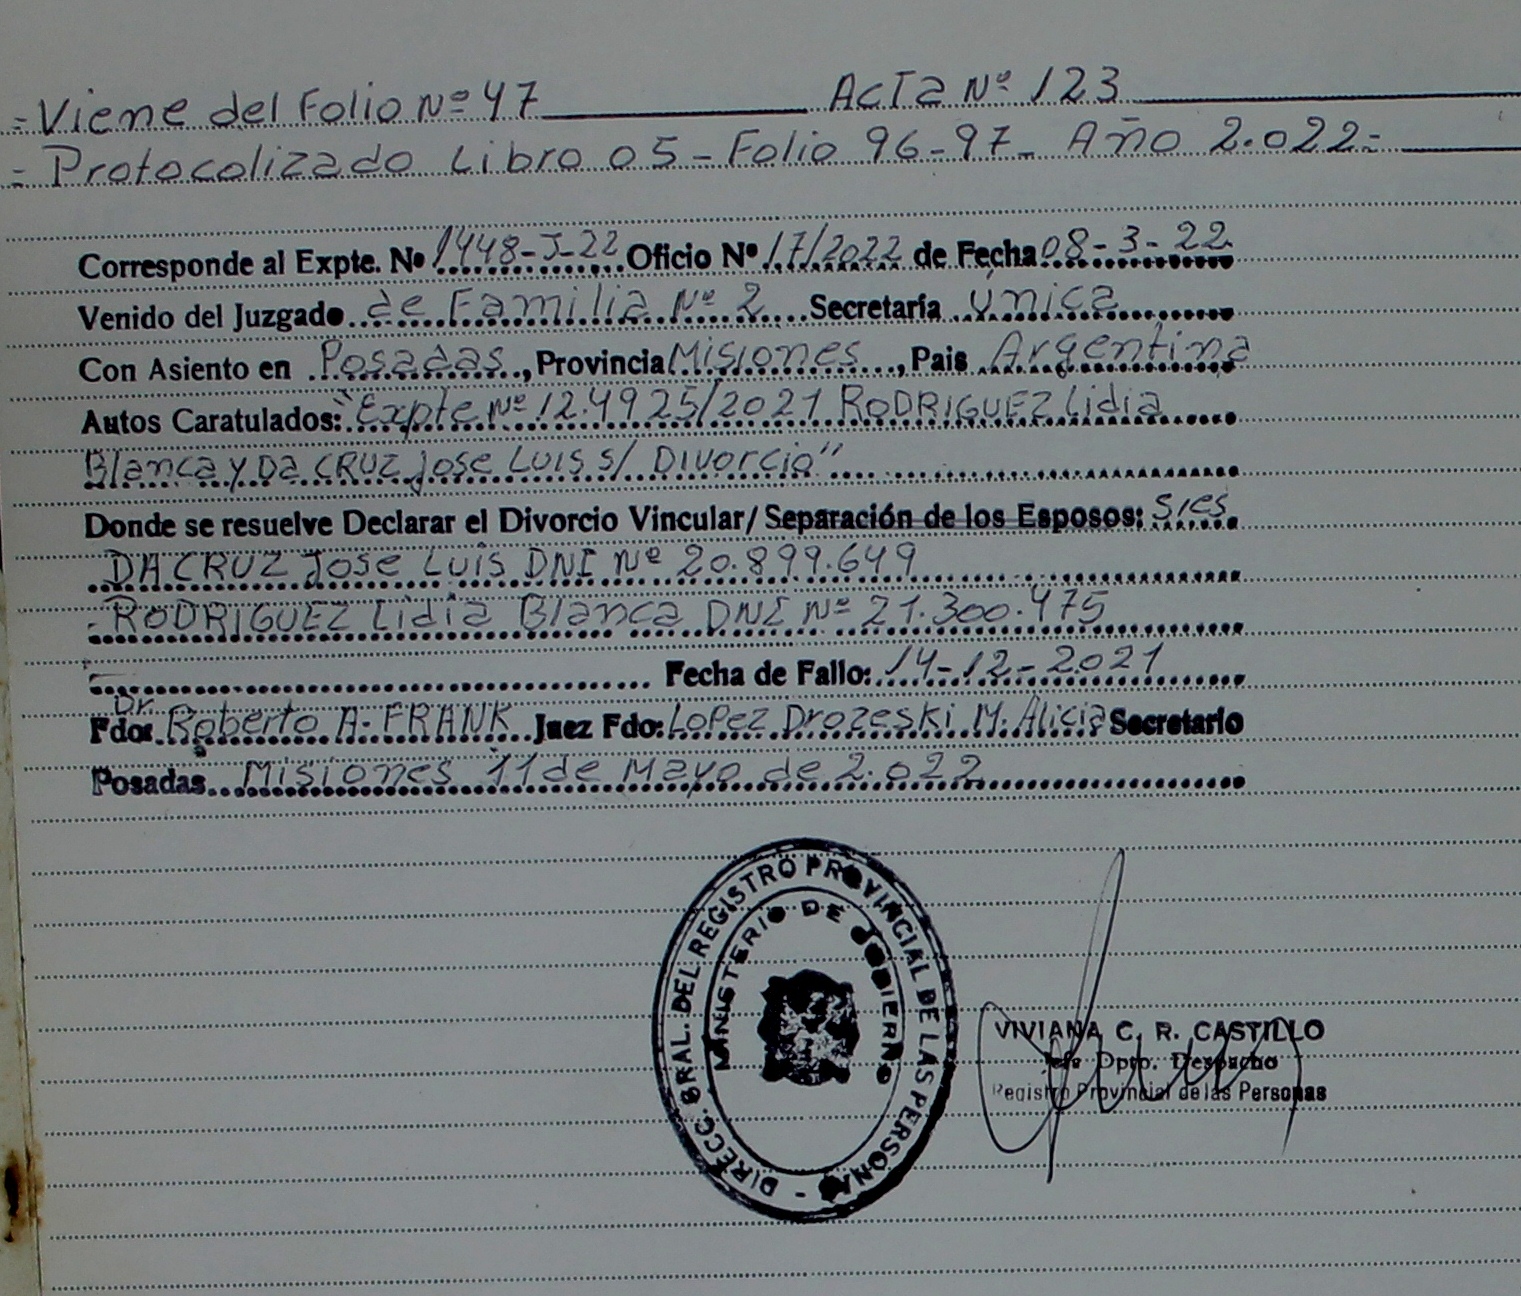 = Viene del Folio Nº 47 Acta Nº 123
= Protocolizado Libro 05 - Folio 96-97- Año 2.022=
Corresponde al Expte. Nº 1448-J-22 Oficio Nº 17/2022 de Fecha 08-3-22
Venido del Juzgado de Familia Nº 2 Secretaría única
Con Asiento en Posadas, Provincia Misiones, Pais Argentina
Autos Caratulados: "Expte Nº 124925/2021 RODRIGUEZ Lidia
Blanca y DA CRUZ Jose Luis s/ Divorcio"
Donde se resuelve Declarar el Divorcio Vincular/ Separación de los Esposos:
DA CRUZ Jose Luis DNI Nº 20.899.649
- RODRIGUEZ Lidia Blanca DNI Nº 21.300.475
Fecha de Fallo: 14-12-2021
Dr.
Fdo: Roberto A. FRANK Juez Fdo: Lopez Drozeski M. Alicia Secretario
Posadas Misiones 11 de Mayo de 2.022
DIRECC. GRAL. DEL REGISTRO PROVINCIAL DE LAS PERSONAS -
MINISTERIO DE GOBIERNO
VIVIANA C. R. CASTILLO
Jefe Dpto. Despacho
Registro Provincial de las Personas